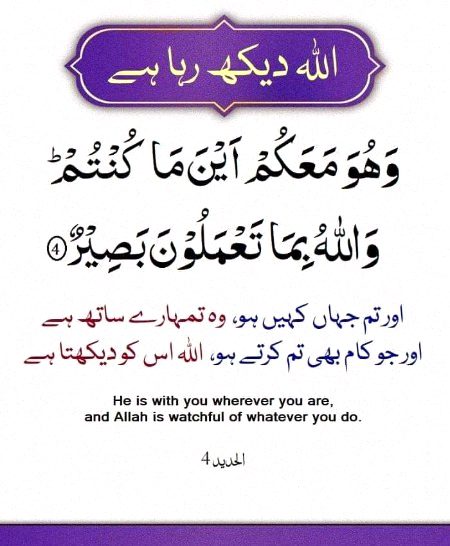 اللہ دیکھ رہا ہے
وَهُوَ مَعَكُمْ اَيْنَ مَا كُنْتُمْ ؕ
وَاللّٰهُ بِمَا تَعْمَلُوْنَ بَصِيْرٌ ④
اور تم جہاں کہیں ہو، وہ تمہارے ساتھ ہے
اور جو کام بھی تم کرتے ہو، اللہ اس کو دیکھتا ہے
He is with you wherever you are,
and Allah is watchful of whatever you do.
الحدید 4